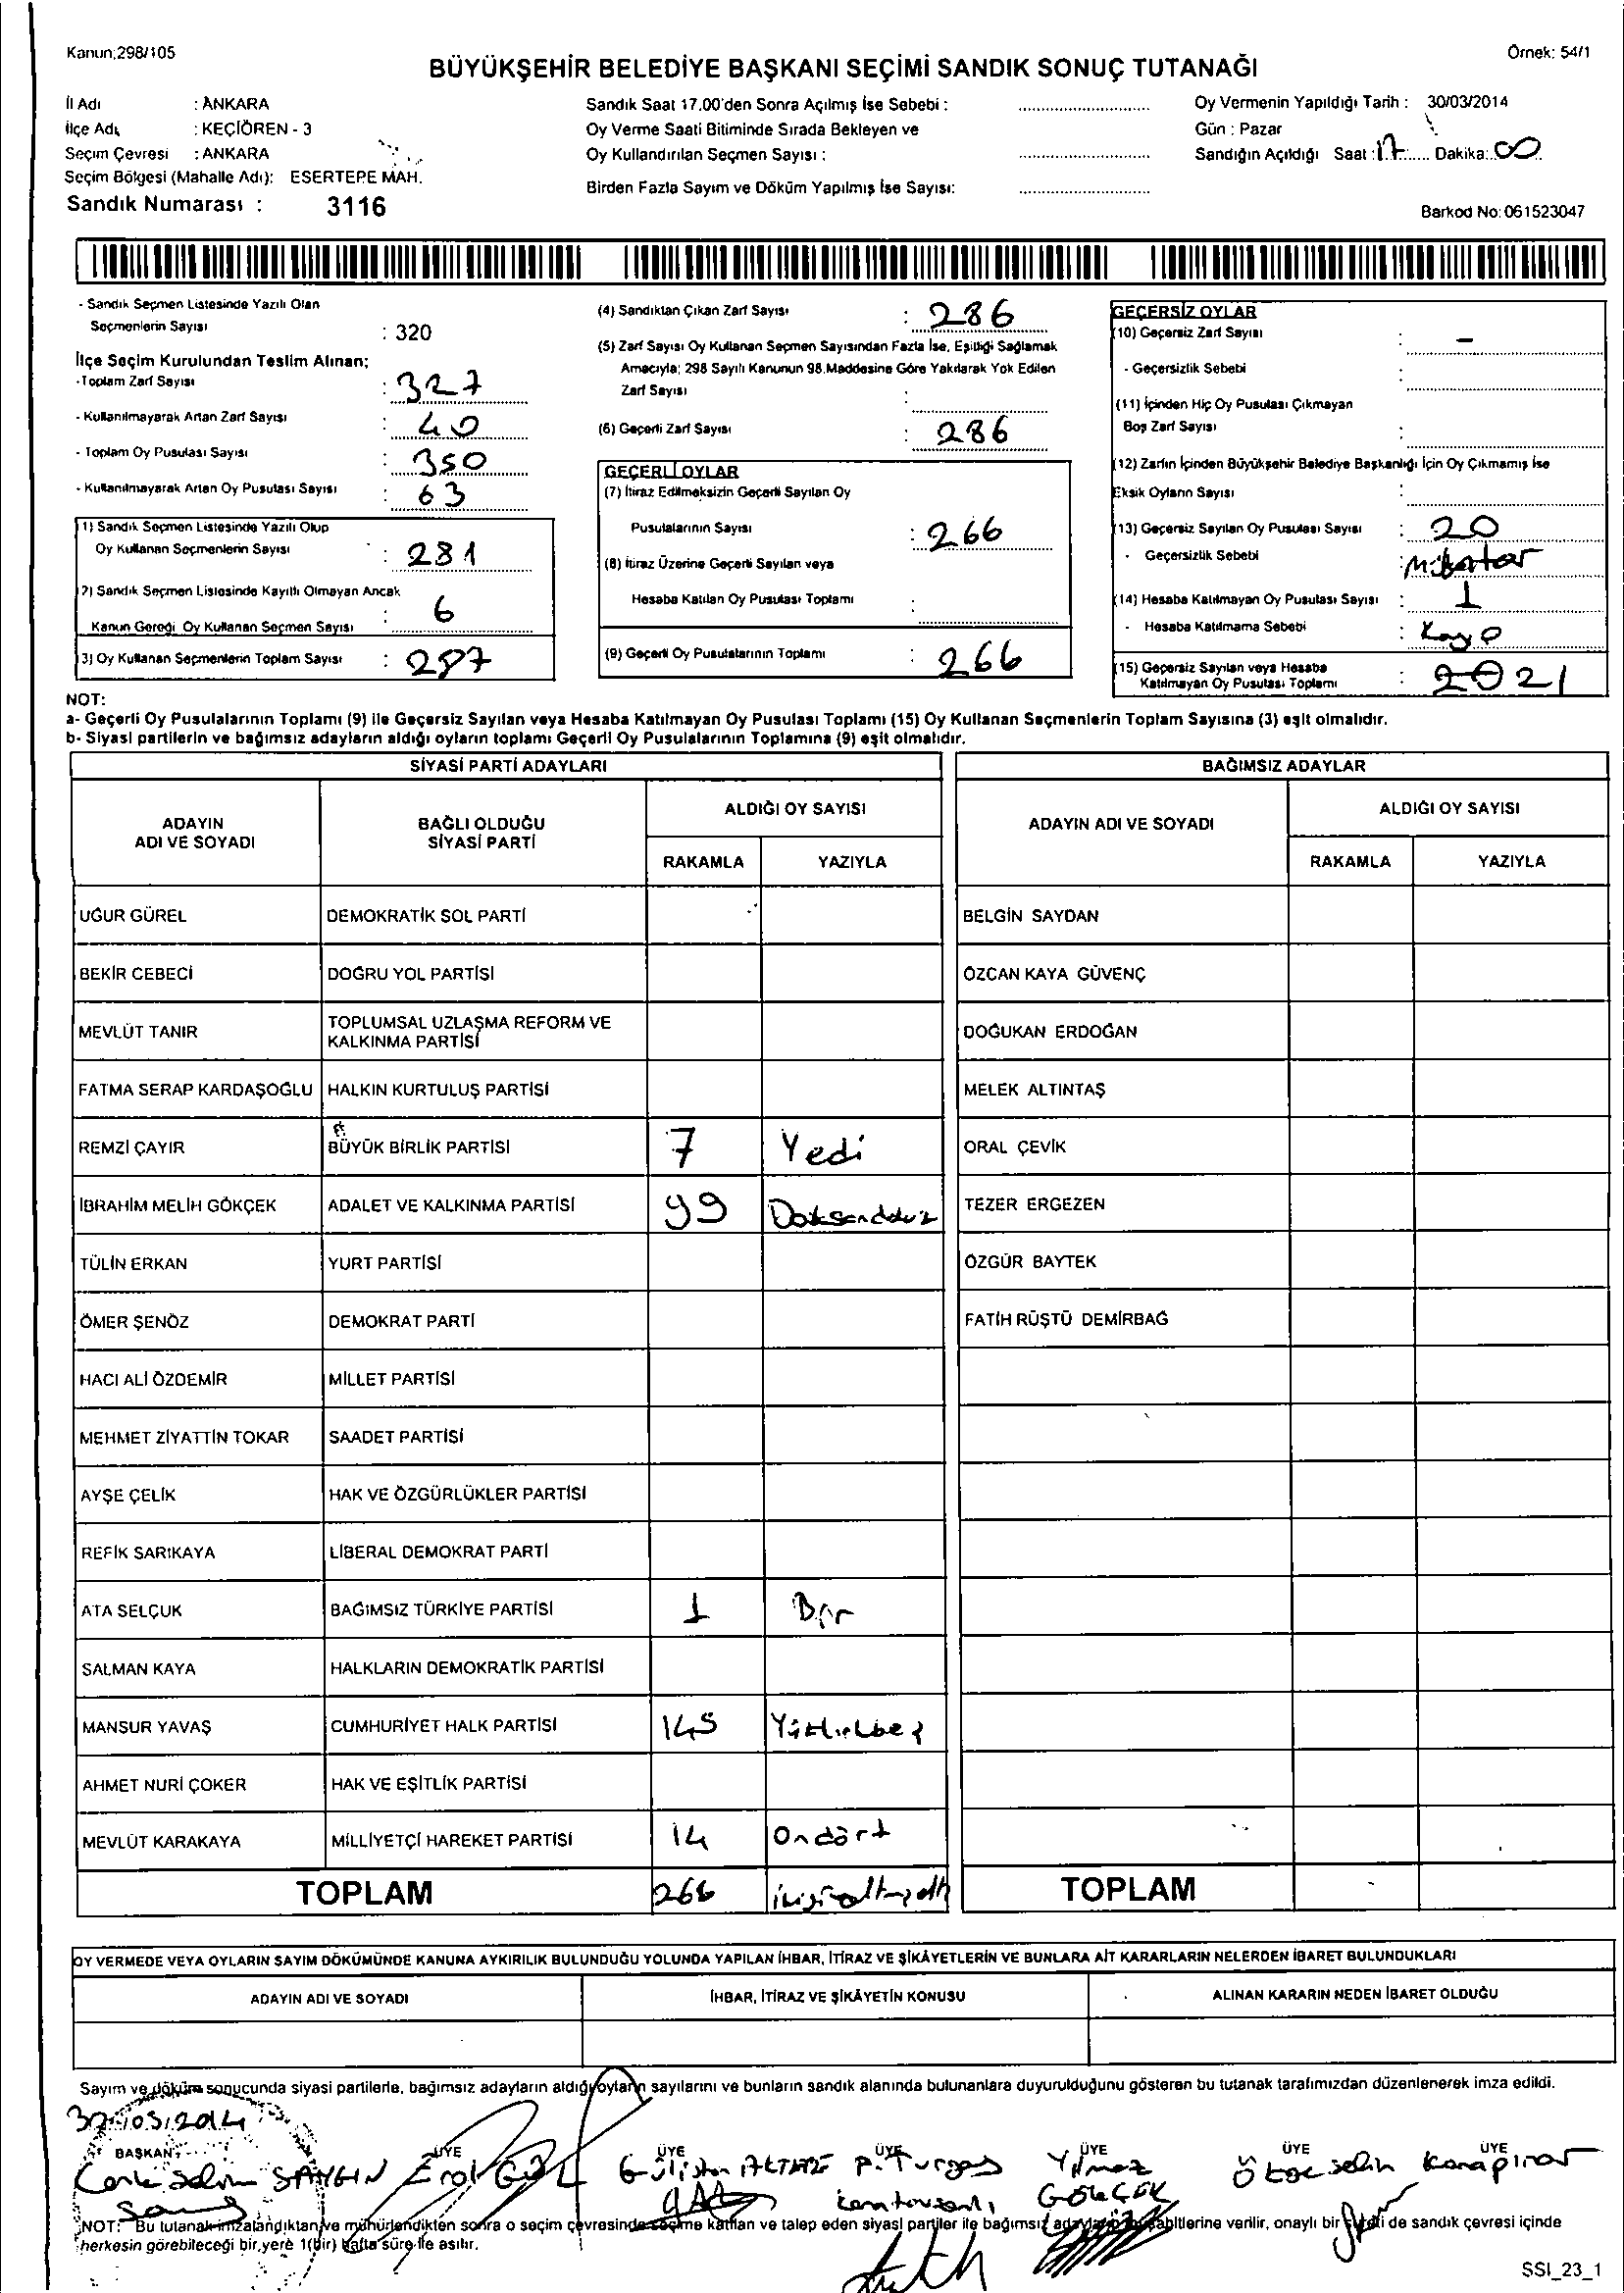 Kanun;298/105
Örnek: 54/1
BÜYÜKŞEHİR BELEDİYE BAŞKANI SEÇİMİ SANDIK SONUÇ TUTANAĞI
İl Adı : ANKARA
İlçe Adı : KEÇİÖREN - 3
Seçim Çevresi : ANKARA
Seçim Bölgesi (Mahalle Adı): ESERTEPE MAH.
Sandık Numarası : 3116
Sandık Saat 17.00'den Sonra Açılmış İse Sebebi :
Oy Verme Saati Bitiminde Sırada Bekleyen ve
Oy Kullandırılan Seçmen Sayısı :
Birden Fazla Sayım ve Döküm Yapılmış İse Sayısı:
Oy Vermenin Yapıldığı Tarih : 30/03/2014
Gün : Pazar
Sandığın Açıldığı Saat : 17 Dakika: 00
Barkod No: 061523047
- Sandık Seçmen Listesinde Yazılı Olan
Seçmenlerin Sayısı : 320
İlçe Seçim Kurulundan Teslim Alınan;
-Toplam Zarf Sayısı : 327
- Kullanılmayarak Artan Zarf Sayısı : 40
- Toplam Oy Pusulası Sayısı : 350
- Kullanılmayarak Artan Oy Pusulası Sayısı : 63
1) Sandık Seçmen Listesinde Yazılı Olup
Oy Kullanan Seçmenlerin Sayısı : 281
2) Sandık Seçmen Listesinde Kayıtlı Olmayan Ancak
Kanun Gereği Oy Kullanan Seçmen Sayısı : 6
3) Oy Kullanan Seçmenlerin Toplam Sayısı : 287
(4) Sandıktan Çıkan Zarf Sayısı : 286
(5) Zarf Sayısı Oy Kullanan Seçmen Sayısından Fazla İse, Eşitliği Sağlamak
Amacıyla; 298 Sayılı Kanunun 98.Maddesine Göre Yakılarak Yok Edilen
Zarf Sayısı :
(6) Geçerli Zarf Sayısı : 286
GEÇERLİ OYLAR
(7) İtiraz Edilmeksizin Geçerli Sayılan Oy
Pusulalarının Sayısı : 266
(8) İtiraz Üzerine Geçerli Sayılan veya
Hesaba Katılan Oy Pusulası Toplamı :
(9) Geçerli Oy Pusulalarının Toplamı : 266
GEÇERSİZ OYLAR
(10) Geçersiz Zarf Sayısı : -
- Geçersizlik Sebebi :
(11) İçinden Hiç Oy Pusulası Çıkmayan
Boş Zarf Sayısı :
(12) Zarfın İçinden Büyükşehir Belediye Başkanlığı İçin Oy Çıkmamış İse
Eksik Oyların Sayısı :
(13) Geçersiz Sayılan Oy Pusulası Sayısı : 20
- Geçersizlik Sebebi :
(14) Hesaba Katılmayan Oy Pusulası Sayısı : 1
- Hesaba Katılmama Sebebi : Kayıp
(15) Geçersiz Sayılan veya Hesaba
Katılmayan Oy Pusulası Toplamı : 20 21
NOT:
a- Geçerli Oy Pusulalarının Toplamı (9) ile Geçersiz Sayılan veya Hesaba Katılmayan Oy Pusulası Toplamı (15) Oy Kullanan Seçmenlerin Toplam Sayısına (3) eşit olmalıdır.
b- Siyasi partilerin ve bağımsız adayların aldığı oyların toplamı Geçerli Oy Pusulalarının Toplamına (9) eşit olmalıdır.
SİYASİ PARTİ ADAYLARI
ADAYIN ADI VE SOYADI
BAĞLI OLDUĞU SİYASİ PARTİ
ALDIĞI OY SAYISI
RAKAMLA YAZIYLA
UĞUR GÜREL DEMOKRATİK SOL PARTİ
BEKİR CEBECİ DOĞRU YOL PARTİSİ
MEVLÜT TANIR TOPLUMSAL UZLAŞMA REFORM VE KALKINMA PARTİSİ
FATMA SERAP KARDAŞOĞLU HALKIN KURTULUŞ PARTİSİ
REMZİ ÇAYIR BÜYÜK BİRLİK PARTİSİ 7 Yedi
İBRAHİM MELİH GÖKÇEK ADALET VE KALKINMA PARTİSİ 99 Doksandokuz
TÜLİN ERKAN YURT PARTİSİ
ÖMER ŞENÖZ DEMOKRAT PARTİ
HACI ALİ ÖZDEMİR MİLLET PARTİSİ
MEHMET ZİYATTİN TOKAR SAADET PARTİSİ
AYŞE ÇELİK HAK VE ÖZGÜRLÜKLER PARTİSİ
REFİK SARIKAYA LİBERAL DEMOKRAT PARTİ
ATA SELÇUK BAĞIMSIZ TÜRKİYE PARTİSİ 1 Bir
SALMAN KAYA HALKLARIN DEMOKRATİK PARTİSİ
MANSUR YAVAŞ CUMHURİYET HALK PARTİSİ 145
AHMET NURİ ÇOKER HAK VE EŞİTLİK PARTİSİ
MEVLÜT KARAKAYA MİLLİYETÇİ HAREKET PARTİSİ 14 Ondört
TOPLAM 266
BAĞIMSIZ ADAYLAR
ADAYIN ADI VE SOYADI
ALDIĞI OY SAYISI
RAKAMLA YAZIYLA
BELGİN SAYDAN
ÖZCAN KAYA GÜVENÇ
DOĞUKAN ERDOĞAN
MELEK ALTINTAŞ
ORAL ÇEVİK
TEZER ERGEZEN
ÖZGÜR BAYTEK
FATİH RÜŞTÜ DEMİRBAĞ
TOPLAM
OY VERMEDE VEYA OYLARIN SAYIM DÖKÜMÜNDE KANUNA AYKIRILIK BULUNDUĞU YOLUNDA YAPILAN İHBAR, İTİRAZ VE ŞİKÂYETLERİN VE BUNLARA AİT KARARLARIN NELERDEN İBARET BULUNDUKLARI
ADAYIN ADI VE SOYADI İHBAR, İTİRAZ VE ŞİKÂYETİN KONUSU ALINAN KARARIN NEDEN İBARET OLDUĞU
Sayım ve döküm sonucunda siyasi partilerle, bağımsız adayların aldığı oyların sayılarını ve bunların sandık alanında bulunanlara duyurulduğunu gösteren bu tutanak tarafımızdan düzenlenerek imza edildi.
30/03/2014
BAŞKAN ÜYE ÜYE ÜYE ÜYE ÜYE ÜYE
SAYGIN Erol GÜL Gülistan P. Turgay Yılmaz Karapınar
GÖKÇÖK
NOT: Bu tutanak imzalandıktan ve mühürlendikten sonra o seçim çevresinde seçime katılan ve talep eden siyasi partiler ile bağımsız verilir, onaylı bir sureti de sandık çevresi içinde
herkesin görebileceği bir yere 1(bir) hafta süre ile asılır.
SSI_23_1